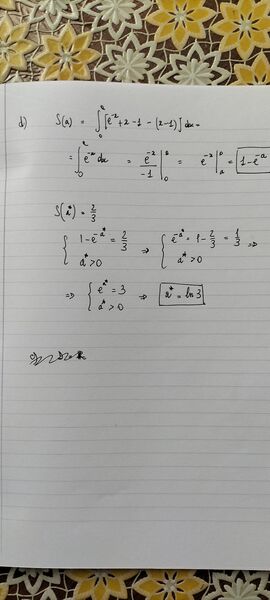 d) S(a) = ∫₀ᵃ [e⁻ˣ + x - 1 - (x-1)] dx =
= ∫₀ᵃ e⁻ˣ dx = e⁻ˣ/-1 |₀ᵃ = e⁻ˣ |ₐ⁰ = 1-e⁻ᵃ
S(a*) = 2/3
{ 1-e^-a* = 2/3 ⇒ { e^-a* = 1 - 2/3 = 1/3 ⇒
a* > 0 a* > 0
⇒ { e^a* = 3 ⇒ a* = ln 3
a* > 0